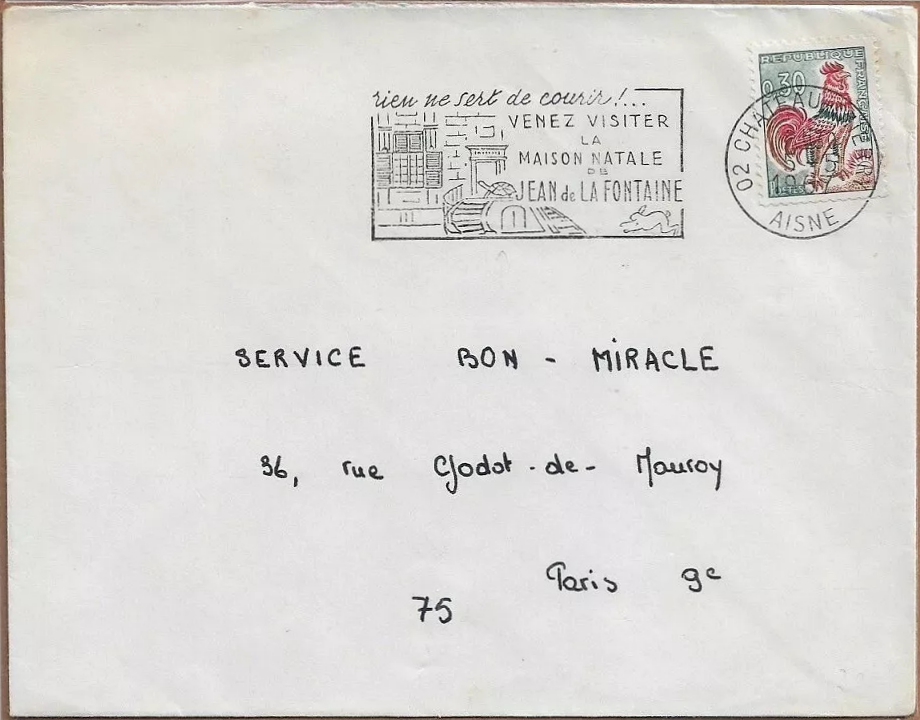 rien ne sert de courir !...
VENEZ VISITER
LA
MAISON NATALE
DE
JEAN de LA FONTAINE
REPUBLIQUE FRANÇAISE
0,30
02 CHATEAU
AISNE
SERVICE BON - MIRACLE
36, rue Godot-de-Mauroy
Paris 9e
75